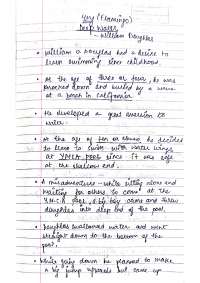 Deep Water
- William Douglas
• William O Douglas had a desire to
learn swimming since childhood.
• At the age of three or four, he was
knocked down and buried by a wave
at a beach in California.
• He developed a great aversion to
water.
• At the age of ten or eleven he decided
to learn to swim with water wings
at YMCA pool since it was safe
at the shallow end.
• A misadventure - while sitting alone and
waiting for others to come at the
Y.M.C.A pool, A big boy came and threw
Douglas into deep end of the pool.
• Douglas swallowed water and went
straight down to the bottom of the
pool.
• While going down he planned to make
a big jump upwards but came up